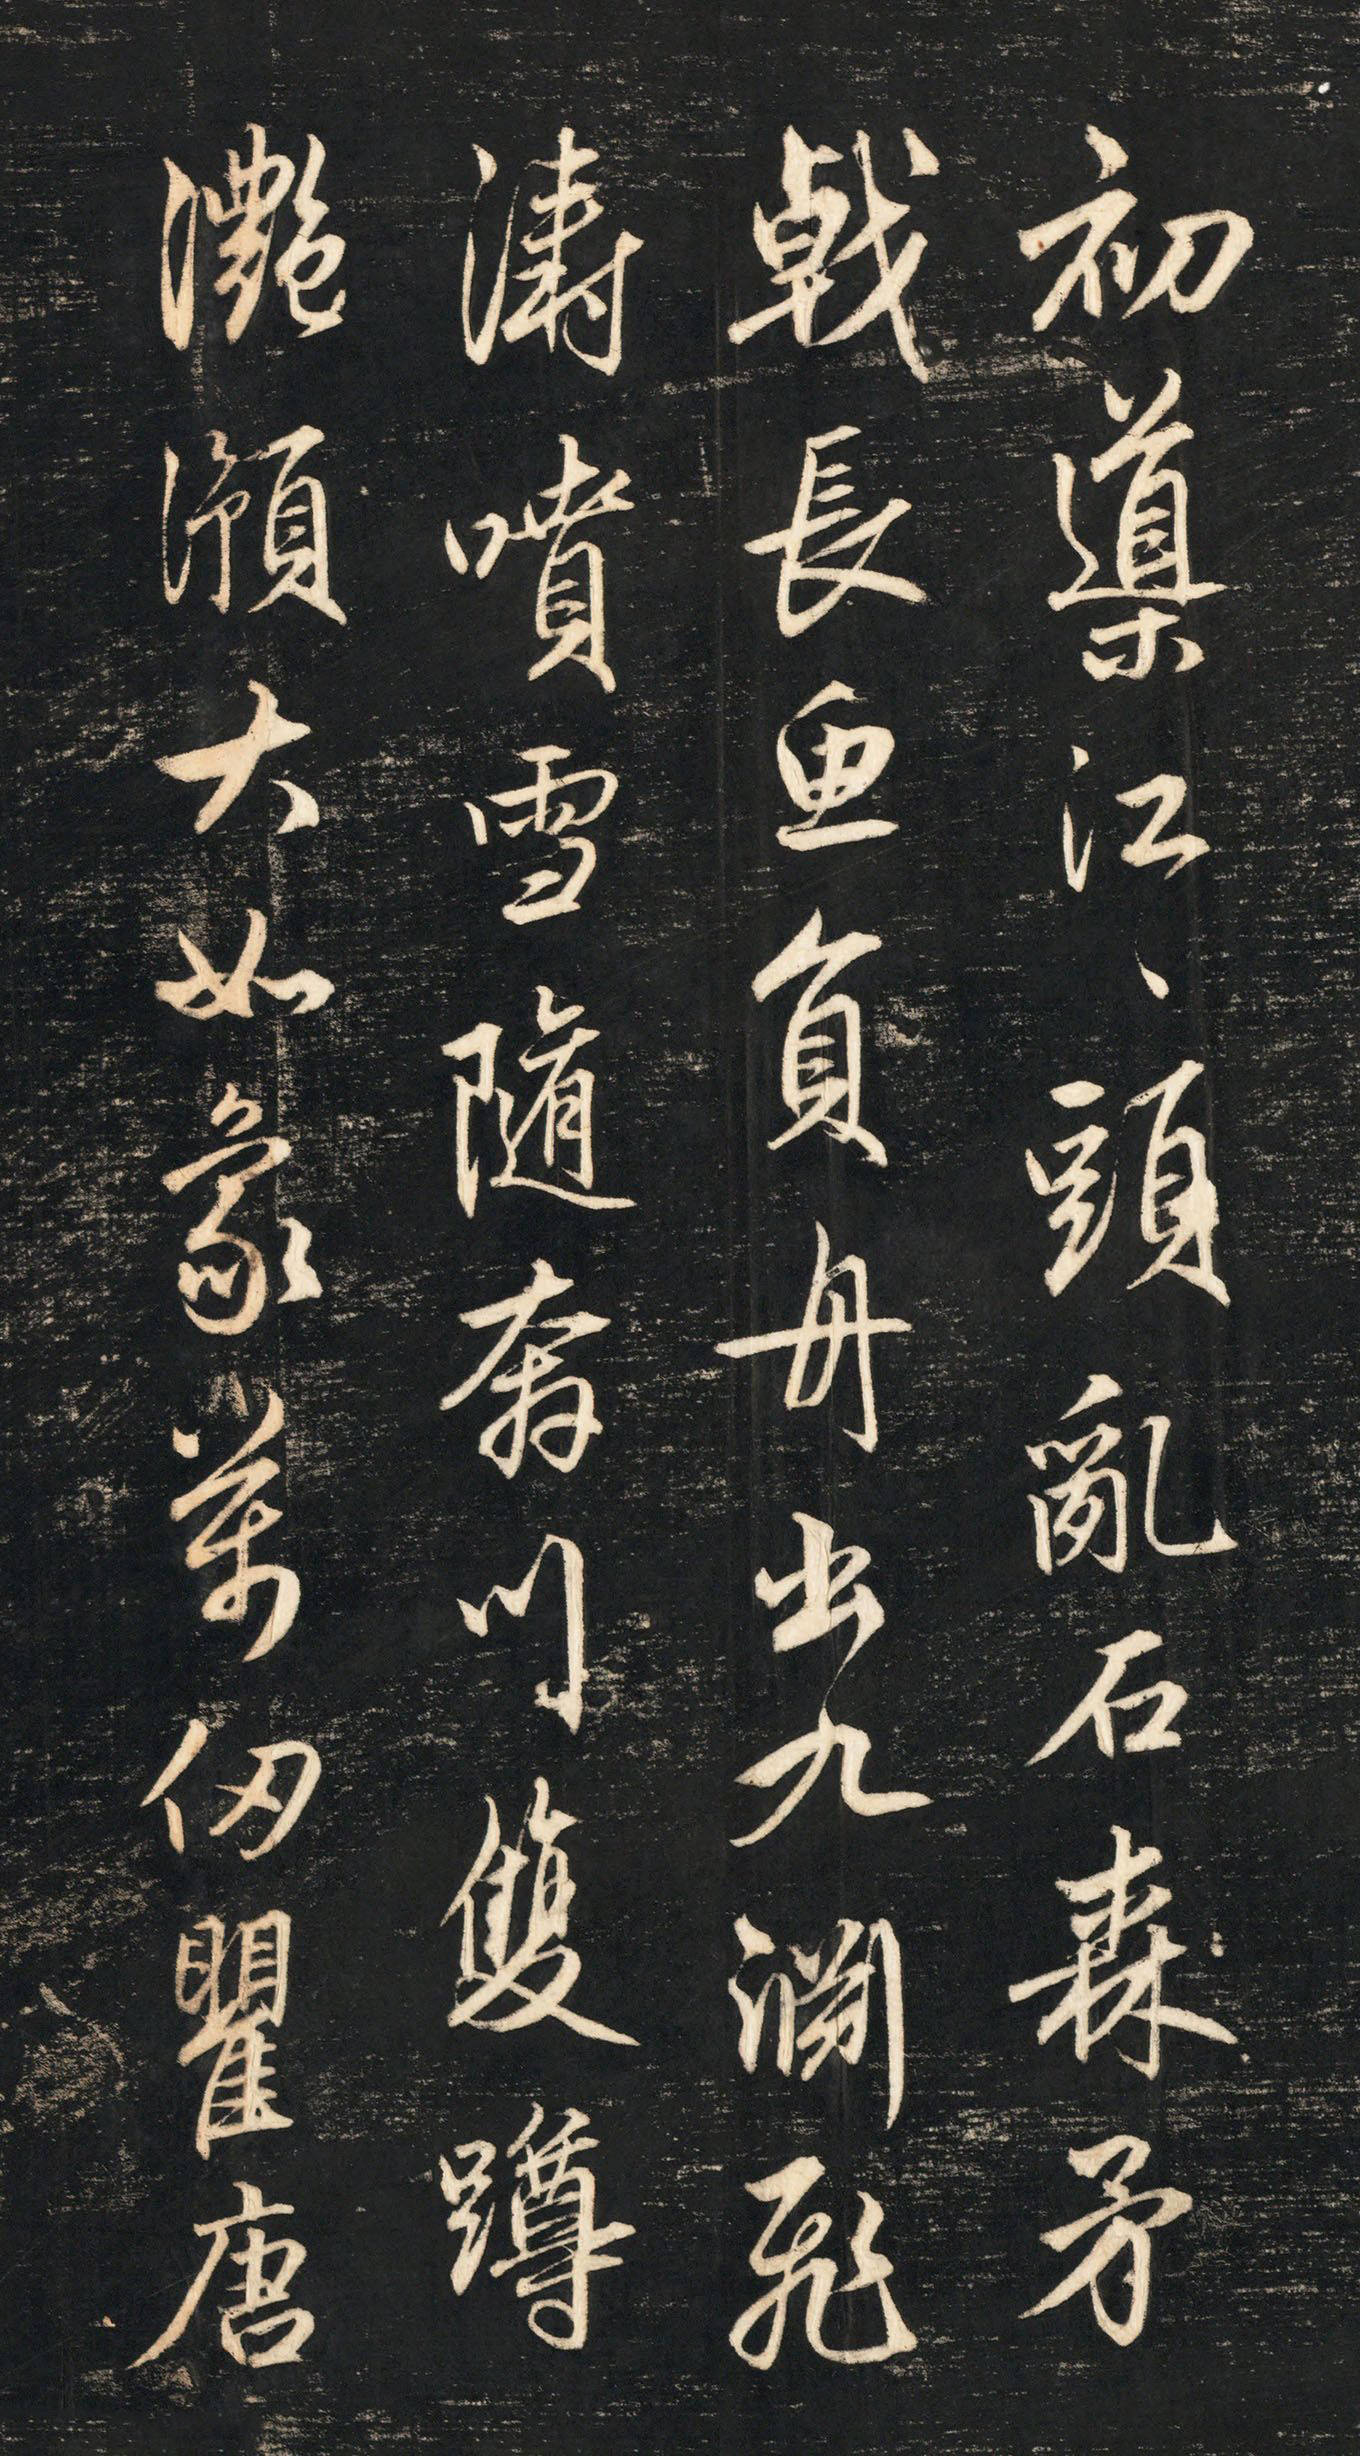 初導江、頭亂石森矛
戟長魚負舟出九淵飛
濤噴雪隨奔川雙蹲
灩澦大如象萬仞瞿唐